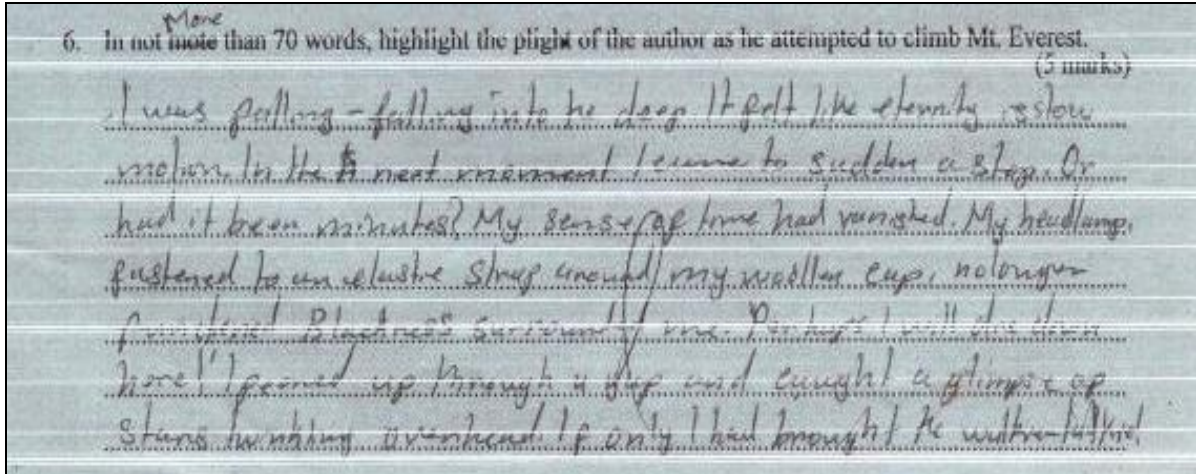 More
6. In not mote than 70 words, highlight the plight of the author as he attempted to climb Mt. Everest.
(5 marks)
I was falling - falling into he deep It felt like eternity slow
motion. In the next moment I came to sudden a stop. Or
had it been minutes? My sense of time had vanished. My headlamp,
fastened to an elastre strap around my woollen cap, nolonger
Blackness surround me. Perhaps I will die down
here! I peered up through a gap and caught a glimpse of
stars twinkling overhead. If only I had brought the